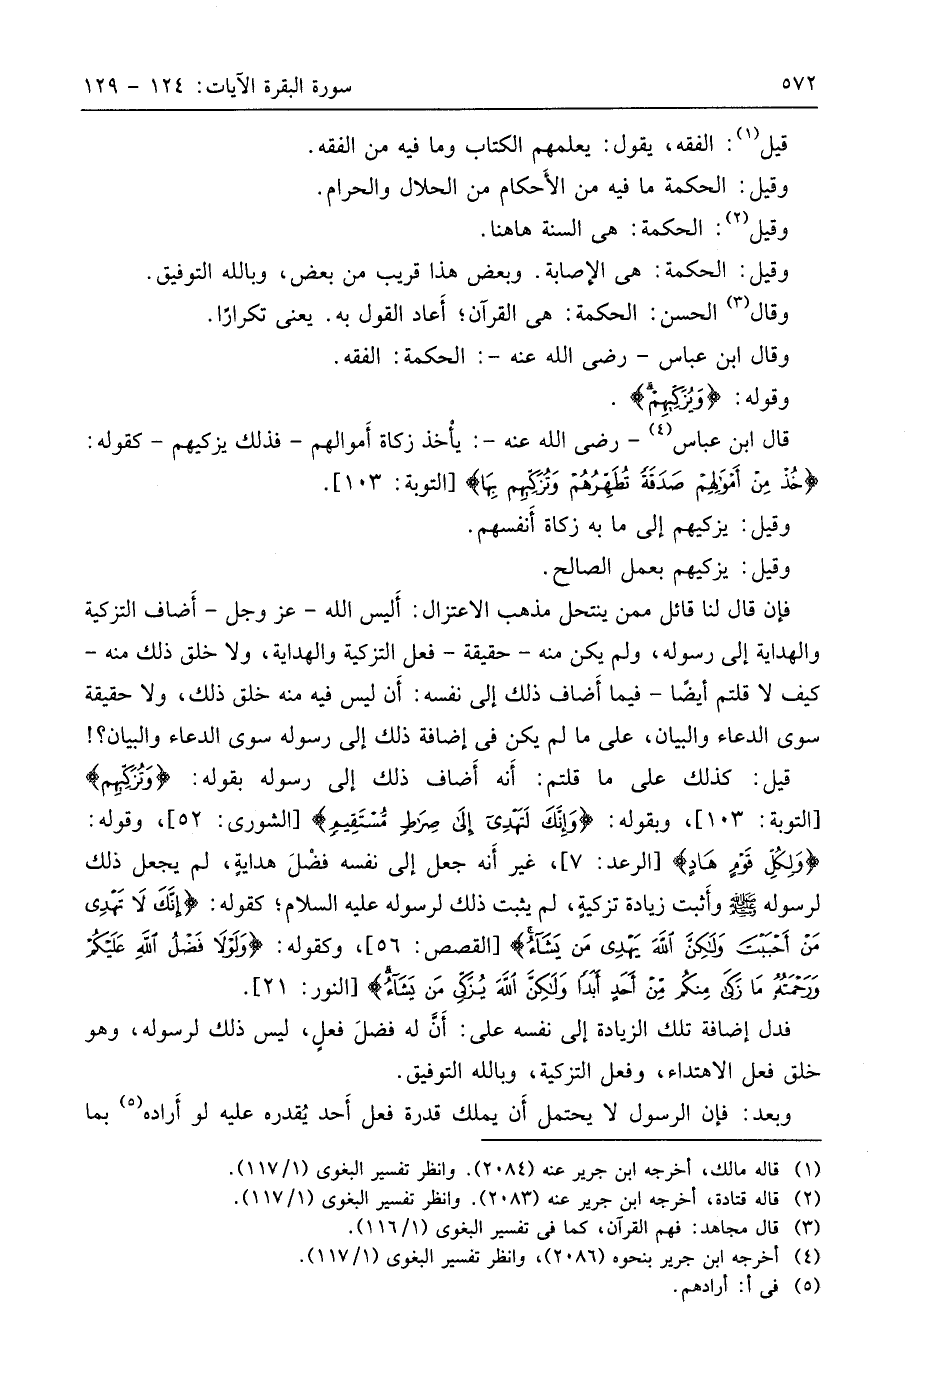 ٥٧٢ سورة البقرة الآيات: ١٢٤ - ١٢٩
قيل(١): الفقه، يقول: يعلمهم الكتاب وما فيه من الفقه.
وقيل: الحكمة ما فيه من الأحكام من الحلال والحرام.
وقيل(٢): الحكمة: هى السنة هاهنا.
وقيل: الحكمة: هى الإصابة. وبعض هذا قريب من بعض، وبالله التوفيق.
وقال(٣) الحسن: الحكمة: هى القرآن؛ أعاد القول به. يعنى تكرارًا.
وقال ابن عباس - رضى الله عنه -: الحكمة: الفقه.
وقوله: ﴿وَيُزَكِّيهِمْ﴾.
قال ابن عباس(٤) - رضى الله عنه -: يأخذ زكاة أموالهم - فذلك يزكيهم - كقوله:
﴿خُذْ مِنْ أَمْوَٰلِهِمْ صَدَقَةً تُطَهِّرُهُمْ وَتُزَكِّيهِم بِهَا﴾ [التوبة: ١٠٣].
وقيل: يزكيهم إلى ما به زكاة أنفسهم.
وقيل: يزكيهم بعمل الصالح.
فإن قال لنا قائل ممن ينتحل مذهب الاعتزال: أليس الله - عز وجل - أضاف التزكية
والهداية إلى رسوله، ولم يكن منه - حقيقة - فعل التزكية والهداية، ولا خلق ذلك منه -
كيف لا قلتم أيضًا - فيما أضاف ذلك إلى نفسه: أن ليس فيه منه خلق ذلك، ولا حقيقة
سوى الدعاء والبيان، على ما لم يكن فى إضافة ذلك إلى رسوله سوى الدعاء والبيان؟!
قيل: كذلك على ما قلتم: أنه أضاف ذلك إلى رسوله بقوله: ﴿وَتُزَكِّيهِم﴾
[التوبة: ١٠٣]، وبقوله: ﴿وَإِنَّكَ لَتَهْدِىٓ إِلَىٰ صِرَٰطٍ مُّسْتَقِيمٍ﴾ [الشورى: ٥٢]، وقوله:
﴿وَلِكُلِّ قَوْمٍ هَادٍ﴾ [الرعد: ٧]، غير أنه جعل إلى نفسه فضْلَ هدايةٍ، لم يجعل ذلك
لرسوله ﷺ وأثبت زيادة تزكيةٍ، لم يثبت ذلك لرسوله عليه السلام؛ كقوله: ﴿إِنَّكَ لَا تَهْدِى
مَنْ أَحْبَبْتَ وَلَٰكِنَّ ٱللَّهَ يَهْدِى مَن يَشَآءُ﴾ [القصص: ٥٦]، وكقوله: ﴿وَلَوْلَا فَضْلُ ٱللَّهِ عَلَيْكُمْ
وَرَحْمَتُهُۥ مَا زَكَىٰ مِنكُم مِّنْ أَحَدٍ أَبَدًا وَلَٰكِنَّ ٱللَّهَ يُزَكِّى مَن يَشَآءُ﴾ [النور: ٢١].
فدل إضافة تلك الزيادة إلى نفسه على: أنَّ له فضلَ فعلٍ، ليس ذلك لرسوله، وهو
خلق فعل الاهتداء، وفعل التزكية، وبالله التوفيق.
وبعد: فإن الرسول لا يحتمل أن يملك قدرة فعل أحد يُقدره عليه لو أراده(٥) بما
(١) قاله مالك، أخرجه ابن جرير عنه (٢٠٨٤). وانظر تفسير البغوى (١/١١٧).
(٢) قاله قتادة، أخرجه ابن جرير عنه (٢٠٨٣). وانظر تفسير البغوى (١/١١٧).
(٣) قال مجاهد: فهم القرآن، كما فى تفسير البغوى (١/١١٦).
(٤) أخرجه ابن جرير بنحوه (٢٠٨٦)، وانظر تفسير البغوى (١/١١٧).
(٥) فى أ: أرادهم.